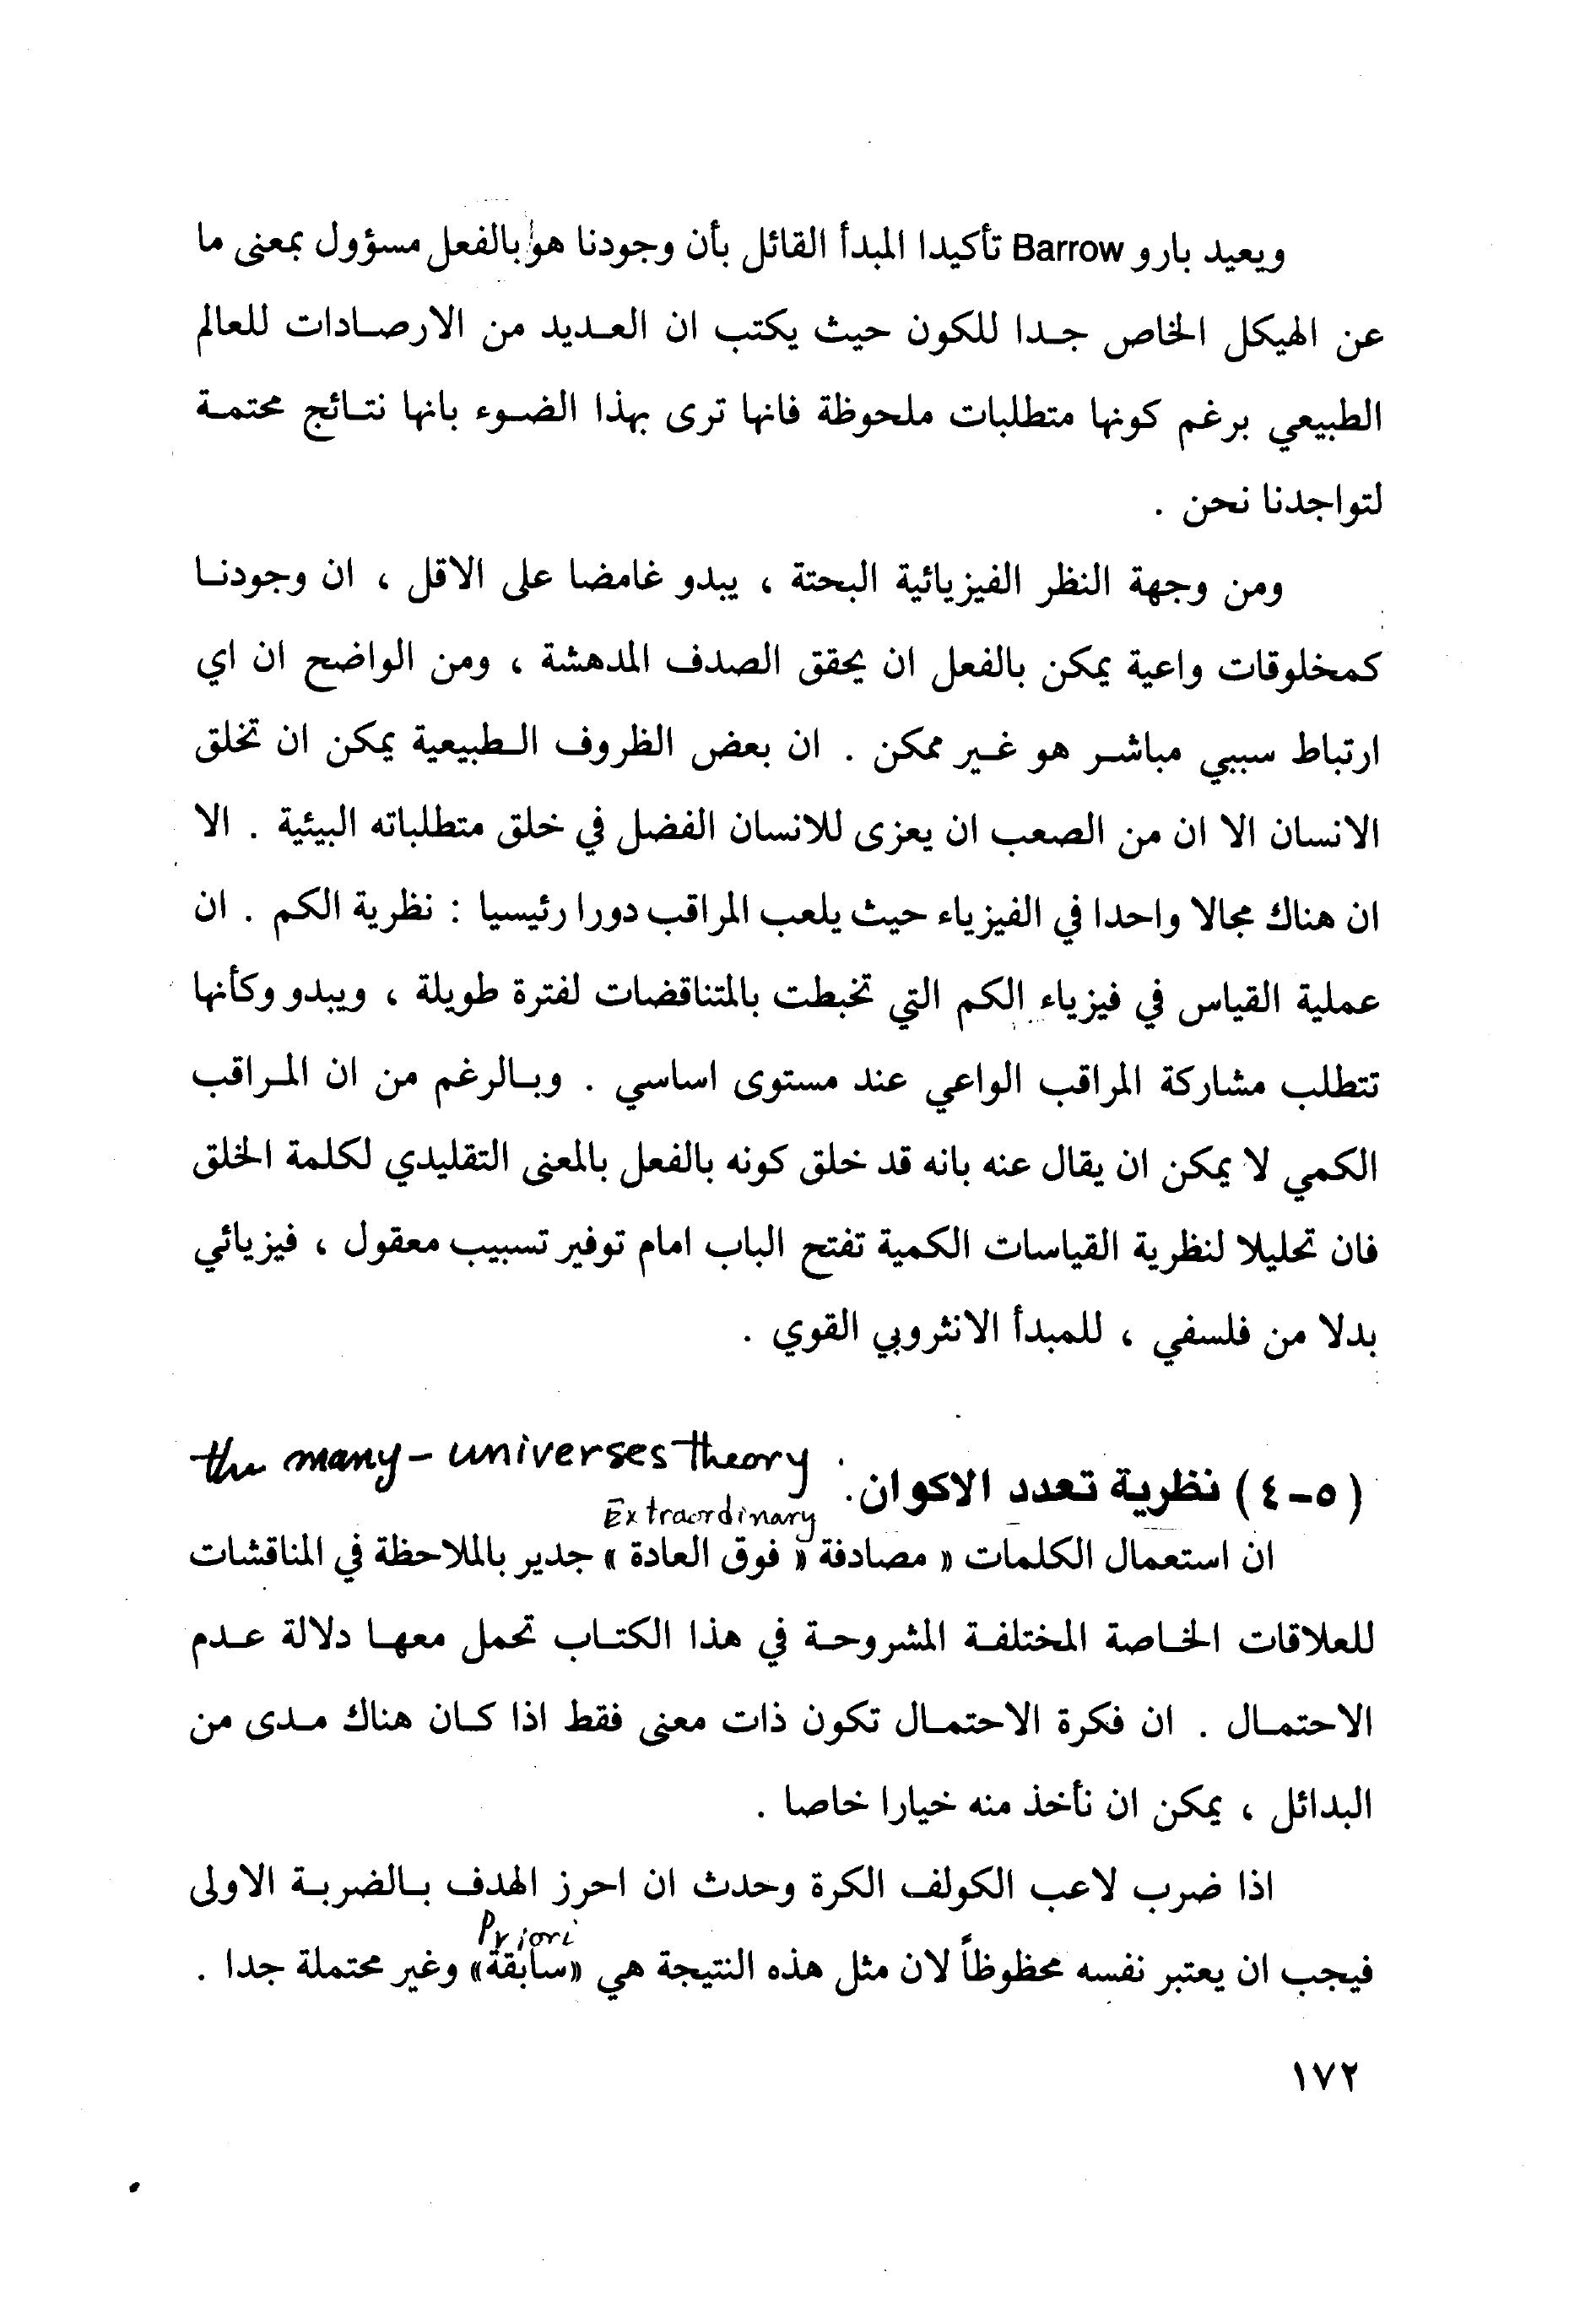 ويعيد بارو Barrow تأكيدا المبدأ القائل بأن وجودنا هو بالفعل مسؤول بمعنى ما
عن الهيكل الخاص جدا للكون حيث يكتب ان العديد من الارصادات للعالم
الطبيعي برغم كونها متطلبات ملحوظة فانها ترى بهذا الضوء بانها نتائج محتمة
لتواجدنا نحن .
ومن وجهة النظر الفيزيائية البحتة ، يبدو غامضا على الاقل ، ان وجودنا
كمخلوقات واعية يمكن بالفعل ان يحقق الصدف المدهشة ، ومن الواضح ان اي
ارتباط سببي مباشر هو غير ممكن . ان بعض الظروف الطبيعية يمكن ان تخلق
الانسان الا ان من الصعب ان يعزى للانسان الفضل في خلق متطلباته البيئية . الا
ان هناك مجالا واحدا في الفيزياء حيث يلعب المراقب دورا رئيسيا : نظرية الكم . ان
عملية القياس في فيزياء الكم التي تخبطت بالمتناقضات لفترة طويلة ، ويبدو وكأنها
تتطلب مشاركة المراقب الواعي عند مستوى اساسي . وبالرغم من ان المراقب
الكمي لا يمكن ان يقال عنه بانه قد خلق كونه بالفعل بالمعنى التقليدي لكلمة الخلق
فان تحليلا لنظرية القياسات الكمية تفتح الباب امام توفير تسبيب معقول ، فيزيائي
بدلا من فلسفي ، للمبدأ الانثروبي القوي .
(٥-٤) نظرية تعدد الاكوان: the many-universes theory
Extraordinary
ان استعمال الكلمات « مصادفة « فوق العادة » جدير بالملاحظة في المناقشات
للعلاقات الخاصة المختلفة المشروحة في هذا الكتاب تحمل معها دلالة عدم
الاحتمال . ان فكرة الاحتمال تكون ذات معنى فقط اذا كان هناك مدى من
البدائل ، يمكن ان نأخذ منه خيارا خاصا .
اذا ضرب لاعب الكولف الكرة وحدث ان احرز الهدف بالضربة الاولى
Priori
فيجب ان يعتبر نفسه محظوظاً لان مثل هذه النتيجة هي «سابقة» وغير محتملة جدا .
١٧٢